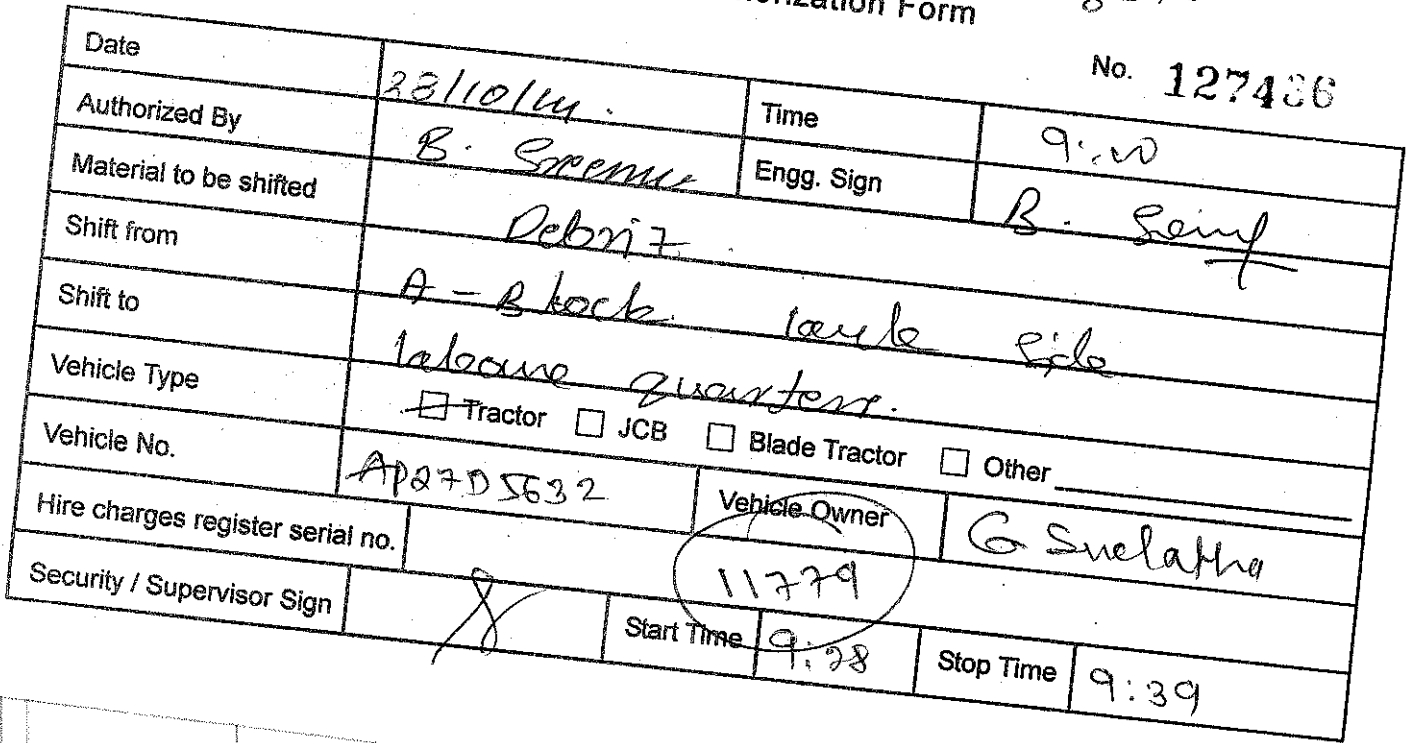 Form
No. 127436
Date 28/10/14.
Time 9:00
Authorized By B. Sreenu
Engg. Sign B.
Material to be shifted Debriz.
Shift from A - Block side
Shift to laboure quarters.
Vehicle Type Tractor JCB Blade Tractor Other
Vehicle No. AP27D5632
Vehicle Owner G Suelatha
Hire charges register serial no. 11779
Security / Supervisor Sign
Start Time 9:28
Stop Time 9:39